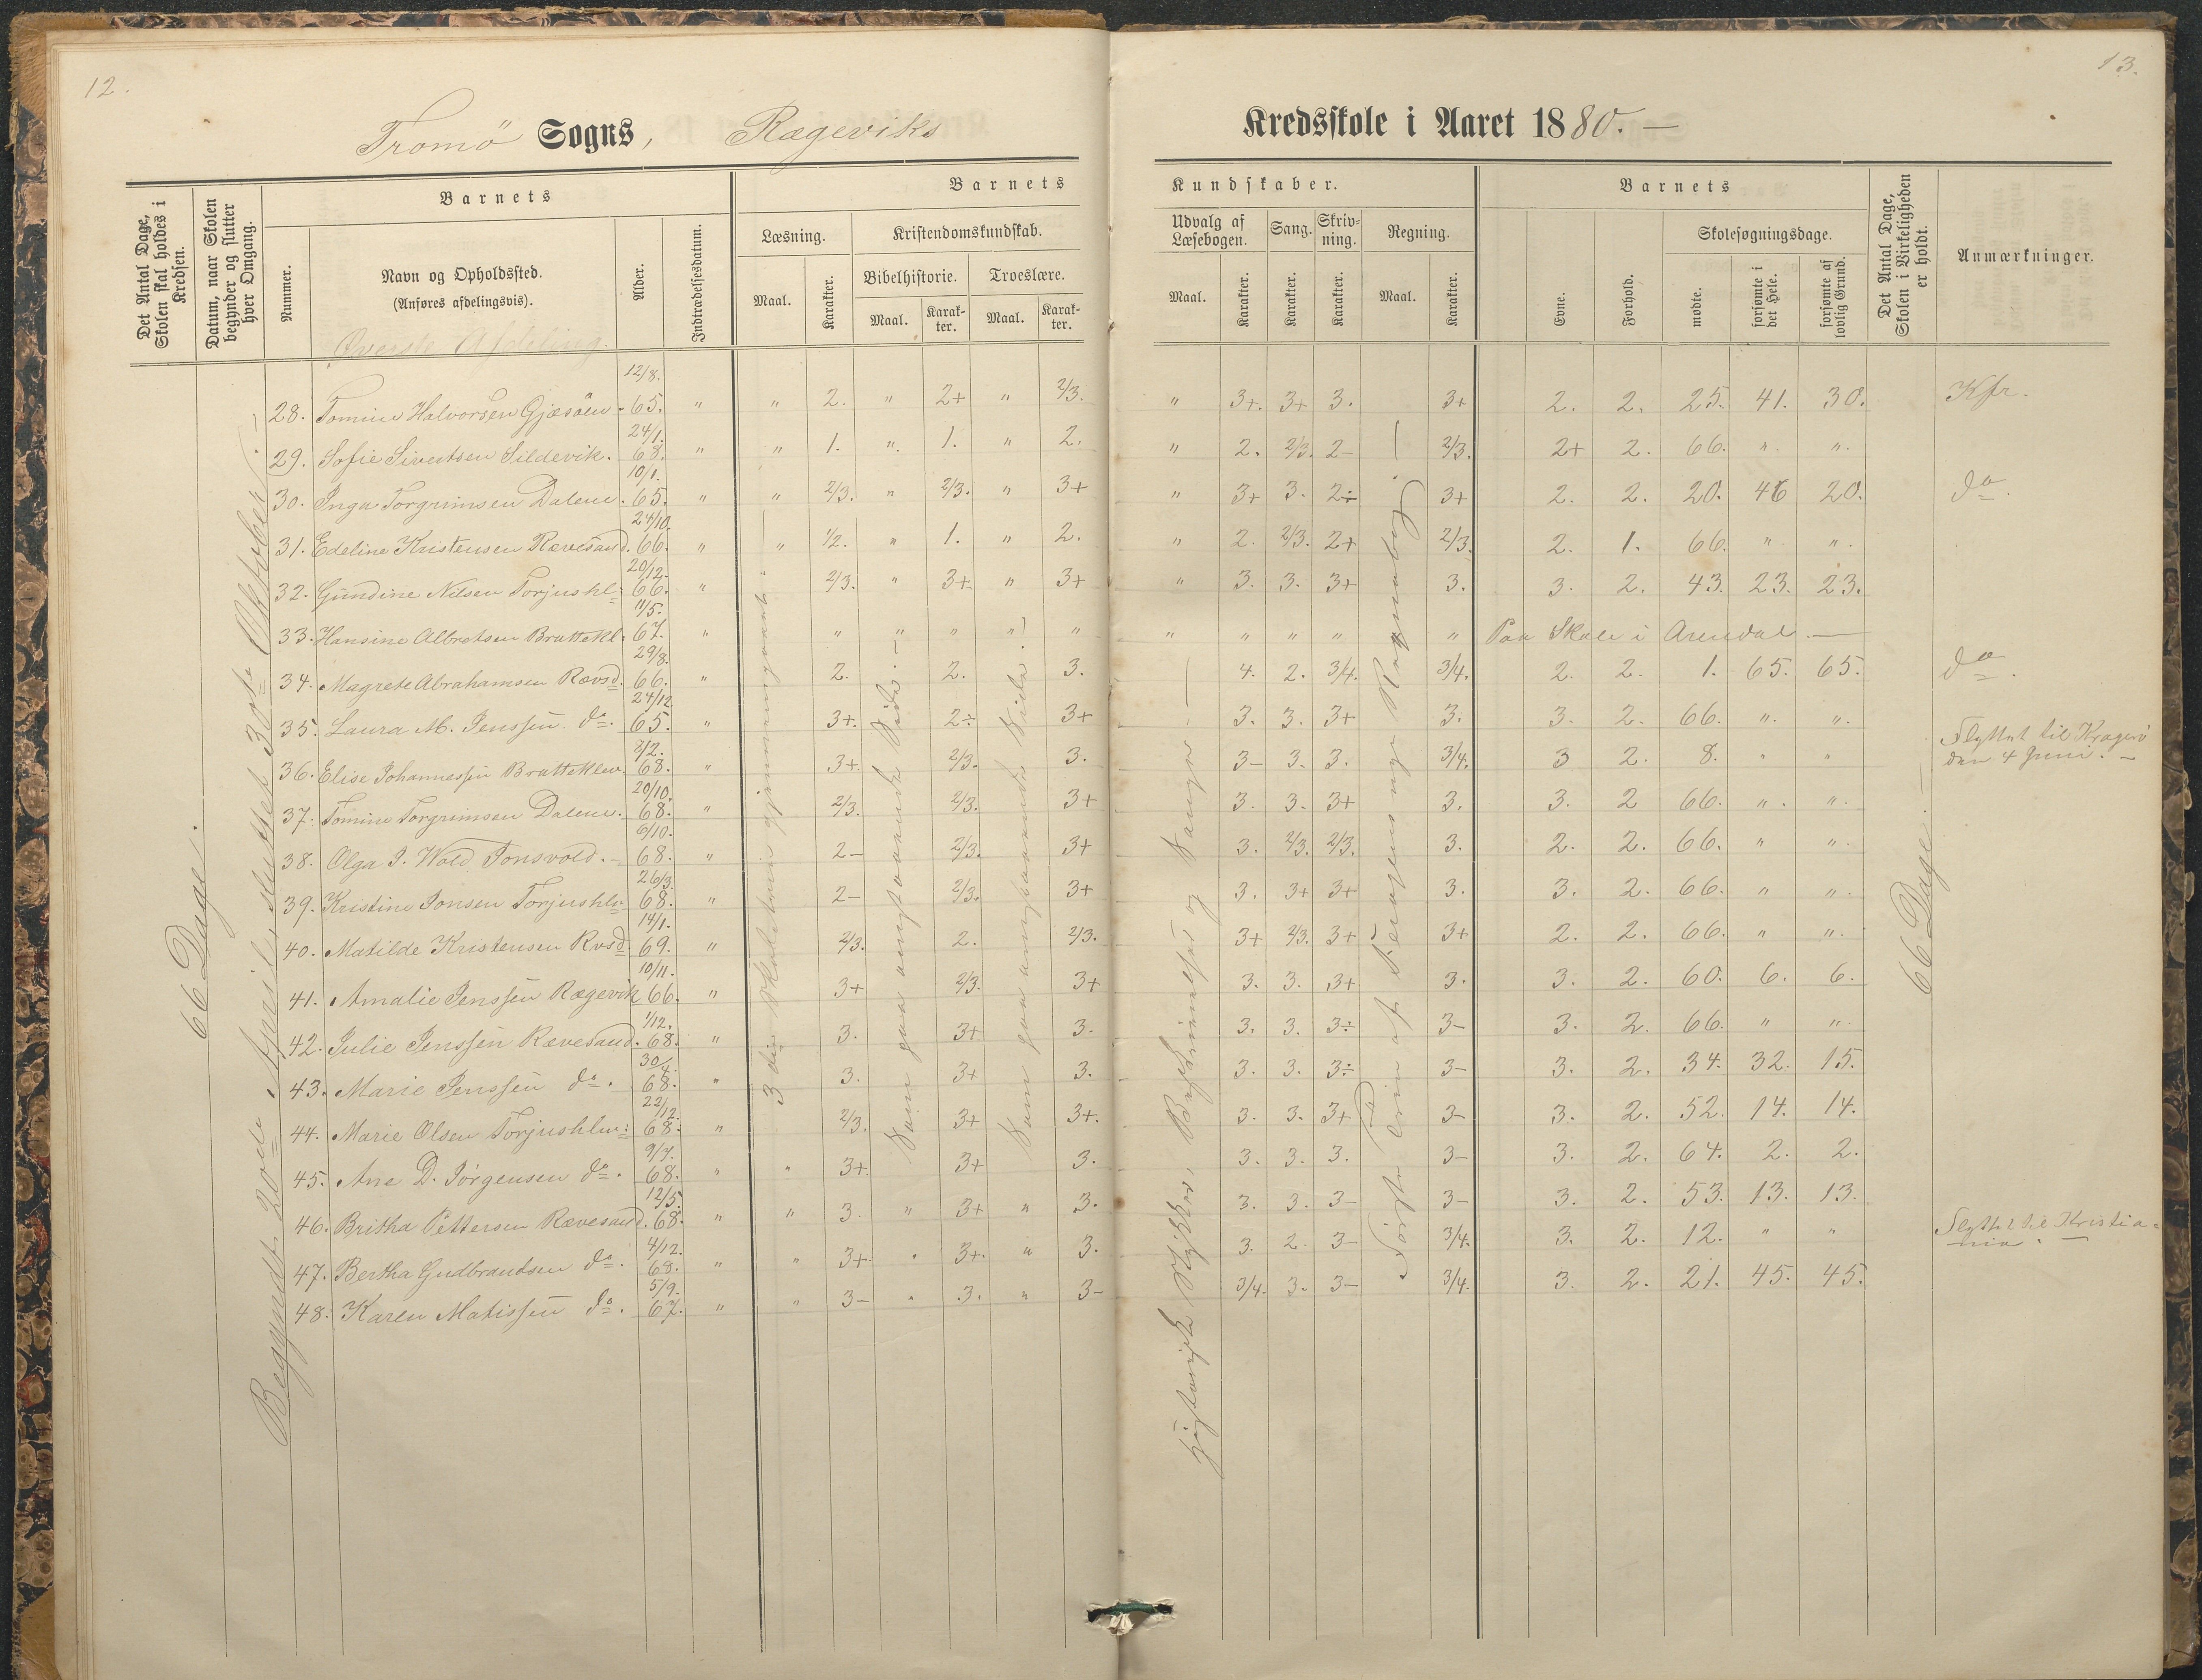 12.
13.
Tromö Sogns, Rægeviks Kredsskole i Aaret 1880. —
Det Antal Dage, Skolen skal holdes i Kredsen.
Datum, naar Skolen begynder og slutter hver Omgang.
Barnets
Nummer.
Navn og Opholdssted.
(Anføres afdelingsvis).
Alder.
Indtrædelsesdatum.
Barnets Kundskaber.
Læsning.
Maal.
Karakter.
Kristendomskundskab.
Bibelhistorie.
Maal.
Karakter.
Troeslære.
Maal.
Karakter.
Udvalg af Læsebogen.
Maal.
Karakter.
Sang.
Karakter.
Skrivning.
Karakter.
Regning.
Maal.
Karakter.
Barnets
Evne.
Forhold.
Skolesøgningsdage.
mødte.
forsømte i det Hele.
forsømte af lovlig Grund.
Det Antal Dage, Skolen i Virkeligheden er holdt.
Anmærkninger.
Øverste Afdeling.
66 Dage.
Begyndt 20de April, sluttet 30te Oktober. —
28. Tomine Halvorsen Gjæsöen - 12/8. 65. " " 2. " 2+ " 2/3. " 3+. 3+ 3. 3+ 2. 2. 25. 41. 30. Kfr.
29. Sofie Sivertsen Sildevik. 24/1. 68. " " 1. " 1. " 2. " 2. 2/3. 2- 2/3. 2+ 2. 66. " "
30. Inga Torgrimsen Dalene. 10/1. 65. " " 2/3. " 2/3. " 3+ " 3+ 3. 2÷ 3+ 2. 2. 20. 46 20. do.
31. Edeline Kristensen Rævesand. 24/10. 66. " " 1/2. " 1. " 2. " 2. 2/3. 2+ 2/3. 2. 1. 66. " "
32. Gundine Nilsen Torjushl: 20/12. 66. " 2/3. " 3+ " 3+ " 3. 3. 3+ 3. 3. 2. 43. 23. 23.
33. Hansine Albretsen Brattekl. 11/5. 67. " " " " " " " " " " " Paa Skole i Arendal —
34. Magrete Abrahamsen Rævsd. 29/8. 66. " 2. 2. 3. 4. 2. 3/4. 3/4. 2. 2. 1. 65. 65. do.
35. Laura M. Jenssen do. 24/12. 65. " 3+. 2÷ 3+ 3. 3. 3+ 3. 3. 2. 66. " "
36. Elise Johannessen Bratteklev. 8/2. 68. " 3+ 2/3. 3. 3- 3. 3. 3/4. 3 2. 8. " " Flyttet til Kragerö den 4 Juni. —
37. Tomine Torgrimsen Dalene. 20/10. 68. " 2/3. 2/3. 3+ 3. 3. 3+ 3. 3. 2 66. " "
38. Olga J. Wold Tonsvold. — 6/10. 68. " 2- 2/3. 3+ 3. 2/3. 2/3. 3. 2. 2. 66. " "
39. Kristine Jonsen Torjushln 26/3. 68. " 2- 2/3. 3+ 3. 3+ 3+ 3. 3. 2. 66. " "
40. Matilde Kristensen Rvsd 14/1. 69. " 2/3. 2. 2/3. 3+ 2/3. 3+ 3+ 2. 2. 66. " "
41. Amalie Jenssen Rægevik 10/11. 66. " 3+ 2/3. 3+ 3. 3. 3+ 3. 3. 2. 60. 6. 6.
42. Julie Jenssen Rævesand. 1/12. 68. " 3. 3+ 3. 3. 3. 3÷ 3- 3. 2. 66. " "
43. Marie Jenssen do. 30/4. 68. " 3. 3+ 3. 3. 3. 3÷ 3- 3. 2. 34. 32. 15.
44. Marie Olsen Torjushln: 22/12. 68. " 2/3. 3+ 3+. 3. 3. 3+ 3- 3. 2. 52. 14. 14.
45. Ane D. Jörgensen do. 9/7. 68. " " 3+ 3+ 3. 3. 3. 3. 3- 3. 2. 64. 2. 2.
46. Britha Pettersen Rævesand. 12/5. 68. " " 3. " 3+ " 3. 3. 3. 3- 3- 3. 2. 53. 13. 13.
47. Bertha Gudbrandsen do. 4/12. 68. " " 3+ " 3+. " 3. 3. 2. 3- 3/4. 3. 2. 12. " " Flyttet til Kristiania. —
48. Karen Matissen do. 5/9. 67. " " 3- " 3. " 3- 3/4. 3. 3- 3/4. 3. 2. 21. 45. 45.
3die Skoletrin gjennemgaaet. —
Som paa modstaaende Side. —
Som paa modstaaende Side.
historiske Stykker, Beskrivelser og Sange. —
Første Trin af nye Regnebog. —
66 Dage. —